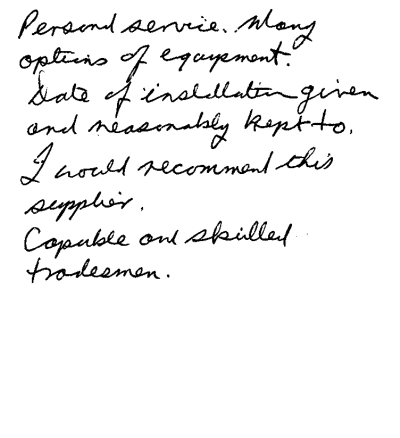 Personal service. Many
options of equipment.
Date of installation given
and reasonably kept to.
I would recommend this
supplier.
Capable and skilled
tradesmen.